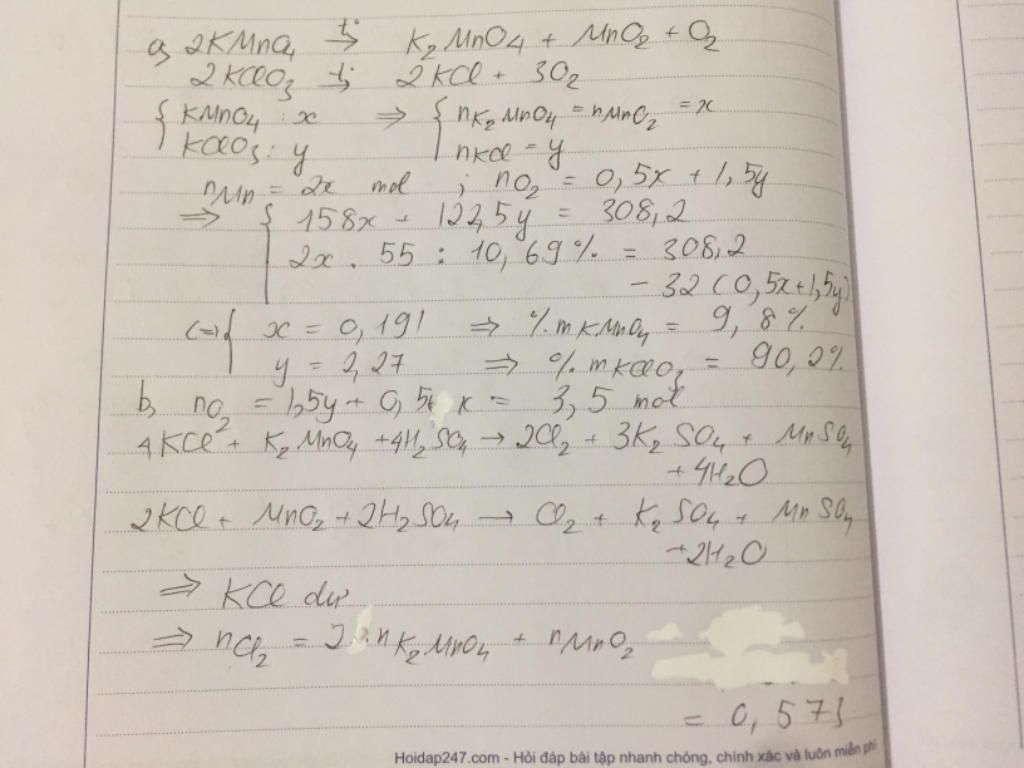 a, 2KMnO4 t°→ K2MnO4 + MnO2 + O2
2KClO3 t°→ 2KCl + 3O2
{ KMnO4 : x ⇒ { nK2MnO4 = nMnO2 = x
KClO3 : y nKCl = y
nMn = 2x mol ; nO2 = 0,5x + 1,5y
⇒ { 158x + 122,5y = 308,2
2x . 55 : 10,69% = 308,2
- 32(0,5x+1,5y)
<=> { x = 0,191 ⇒ %mKMnO4 = 9,8%
y = 2,27 ⇒ %mKClO3 = 90,2%
b, nO2 = 1,5y + 0,5x = 3,5 mol
4KCl + K2MnO4 + 4H2SO4 → 2Cl2 + 3K2SO4 + MnSO4
+ 4H2O
2KCl + MnO2 + 2H2SO4 → Cl2 + K2SO4 + MnSO4
+ 2H2O
⇒ KCl dư
⇒ nCl2 = 2 nK2MnO4 + nMnO2
= 0,573
Hoidap247.com - Hỏi đáp bài tập nhanh chóng, chính xác và luôn miễn phí